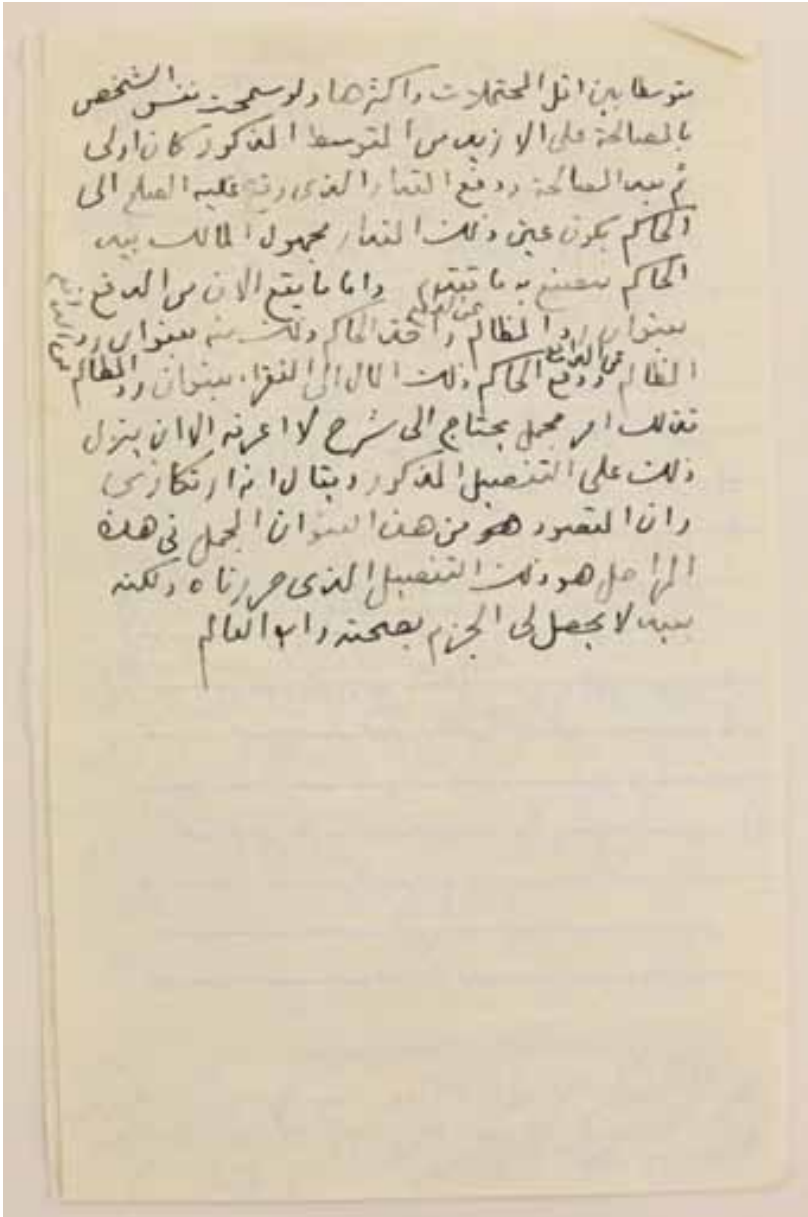 متوسطا بين اقل المحتملات واكثرها ولو سمحت نفس الشخص
بالمصالحة على الازيد من المتوسط المذكور كان اولى
ثم بعد المصالحة ودفع المقدار الذي وقع عليه الصلح الى
الحاكم يكون عين ذلك المقدار مجهول المالك بيد
الحاكم يصنع به ما تقدم واما ما يقع الان من الدفع
بعنوان رد المظالم واخذ الحاكم ذلك منه بعنوان رد
المظالم عن الدافع ودفع الحاكم ذلك المال الى الفقراء بعنوان رد المظالم
فذلك امر مجمل يحتاج الى شرح لا اعرفه الا ان ينزل
ذلك على التفصيل المذكور ويقال انه ارتكازي
وان المقصود من هذا العنوان المجمل في هذه
المراحل هو ذلك التفصيل الذي حررناه ولكنه
بعيد لا يحصل لي الجزم بصحته والله العالم
عن الدافع